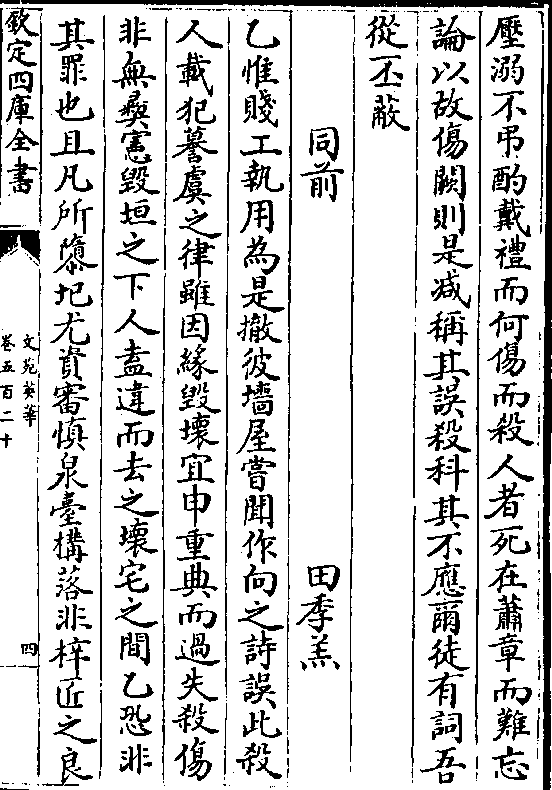 壓溺不弔酌戴禮而何傷而殺人者死在蕭章而難忘
論以故傷闕則是減稱其誤殺科其不應爾徒有詞吾
從丕蔽
同前 田季羔
乙惟賤工執用為是撤彼墻屋嘗聞作向之詩誤此殺
人載犯蓦虞之律雖因緣毀壞宜申重典而過失殺傷
非無彞憲毀垣之下人盍違而去之壞宅之間乙恐非
其罪也且凡所隳圮尤資審慎泉臺構落非梓匠之良
欽定四庫全書
文苑英華
卷五百二十
四